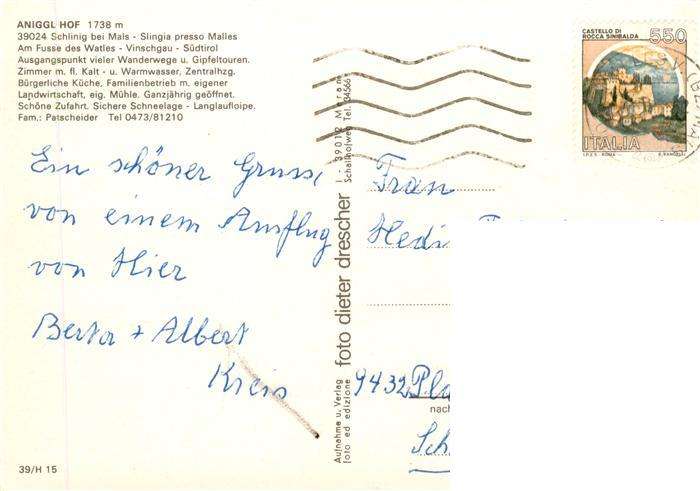 ANIGGL HOF 1738 m
39024 Schlinig bei Mals - Slingia presso Malles
Am Fusse des Watles - Vinschgau - Südtirol
Ausgangspunkt vieler Wanderwege u. Gipfeltouren.
Zimmer m. fl. Kalt - u. Warmwasser, Zentralhzg.
Bürgerliche Küche, Familienbetrieb m. eigener
Landwirtschaft, eig. Mühle. Ganzjährig geöffnet.
Schöne Zufahrt. Sichere Schneelage - Langlaufloipe.
Fam.: Patscheider Tel 0473/81210
Ein schöner Gruss,
von einem Ausflug
von Hier
Berta + Albert
Kreis
39/H 15
Aufnahme u. Verlag
foto ed edizione
foto dieter drescher
I - 39012 Meran
Schallhofweg Tel. 34566
CASTELLO DI
ROCCA SINIBALDA
550
ITALIA
I.P.Z.S. ROMA
Frau
Hedi
9432
nach
Sch